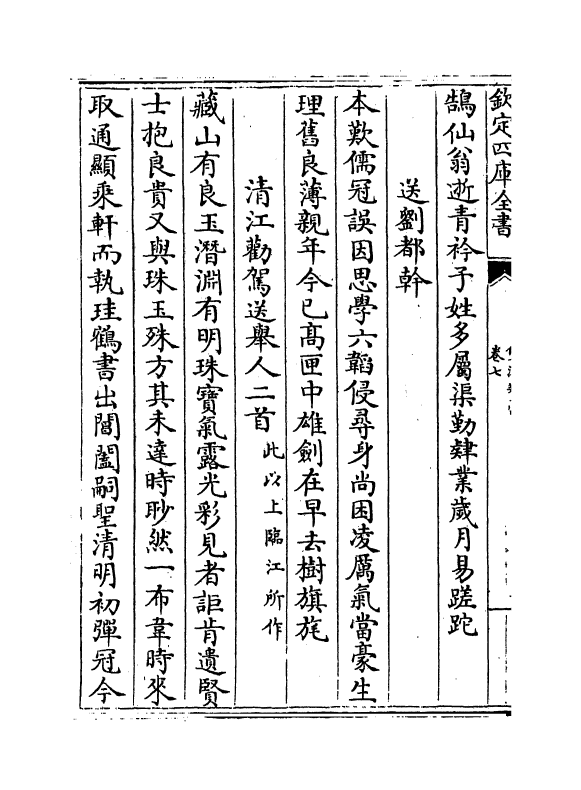 欽定四庫全書
卷七
鵠仙翁逝青衿子姓多屬渠勤肄業歲月易蹉跎
送劉都幹
本歎儒冠誤因思學六韜侵尋身尚困凌厲氣當豪生
理舊良薄親年今已髙匣中雄劍在早去樹旗旄
清江勸駕送舉人二首此以上臨江所作
藏山有良玉潛淵有明珠寶氣露光彩見者詎肯遺賢
士抱良貴又與珠玉殊方其未達時眇然一布韋時來
取通顯乘軒而執珪鶴書出閶闔嗣聖清明初彈冠今